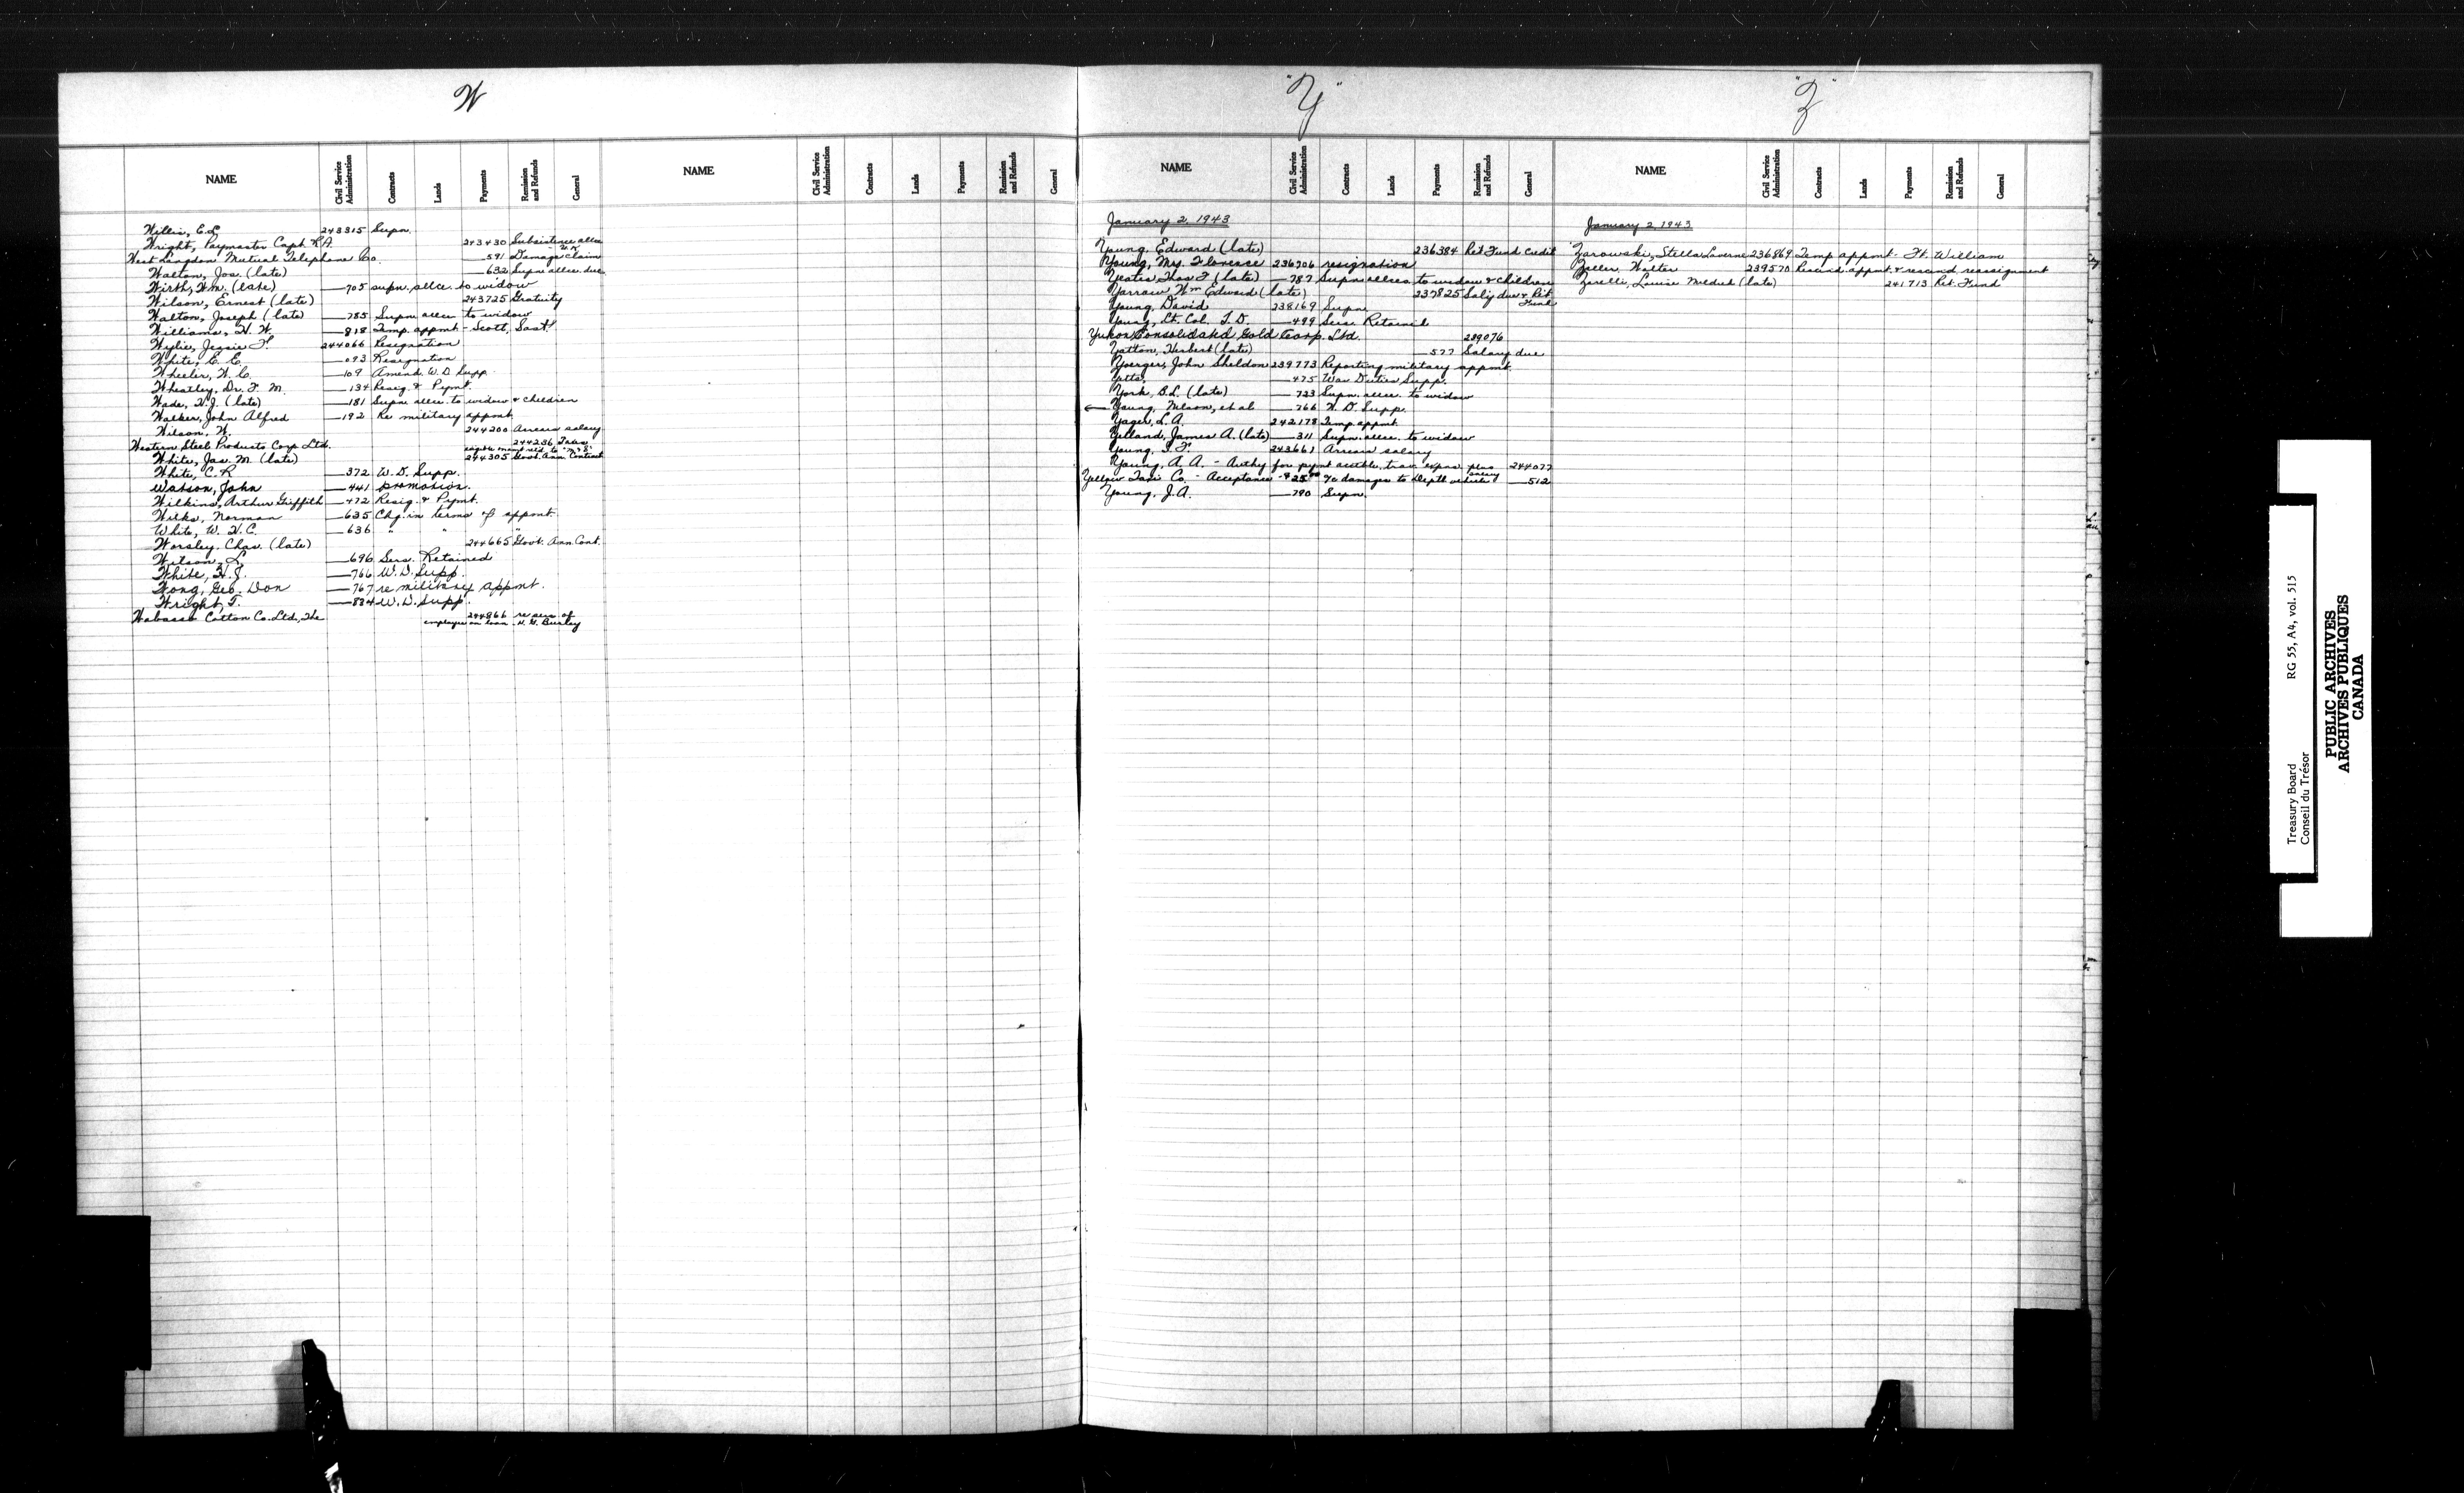 W
NAME Civil Service Administration Contracts Lands Payments Remission and Refunds General
NAME Civil Service Administration Contracts Lands Payments Remission and Refunds General
Willis, E.L. 243315 Supn.
Wright, Paymaster Capt. R.A. 243430 Subsistence allce
- U.K.
West Langdon Mutual Telephone Co. —591 Damage claim
Walton, Jos. (late) —632 Supn. allce. due
Wirth, Wm. (late) —705 supn. allce. to widow
Wilson, Ernest (late) 243725 Gratuity
Walton, Joseph (late) —785 Supn. allce. to widow
Williams, H. W. —818 Temp. appmt - Scott, Sask.
Wylie, Jessie F. 244066 Resignation
White, E. E. —093 Resignation
Wheeler, W. C. —109 Amend. W.D. Supp.
Wheatley, Dr. F. M. —134 Resig. & Pymt.
Wade, H.J. (late) —181 Supn. allce. to widow & children
Walker, John Alfred —192 Re military appmt
Wilson, W. 244200 Arrears salary
Western Steel Products Corp Ltd. 244236
White, Jas. M. (late) 244305 Govt. Ann. Contract
White, C. R —372 W. D. Supp.
Watson, John —441 promotion.
Wilkins, Arthur Griffith —472 Resig. & Pymt.
Wirks, Norman —635 Chg. in terms of appmt
White, W. H. C. —636 " "
Worsley, Chas. (late) 244665 Govt. Ann Cont.
Wilson, L. —696 Serv. Retained
White, H. J. —766 W. D. Supp.
Wong, Geo. Don —767 re military appmt.
Wright, T. —834 W. D. Supp.
Wabasso Cotton Co. Ltd., The 244866 re serv. of
employee on loan - H. G. Burley
"Y"
NAME Civil Service Administration Contracts Lands Payments Remission and Refunds General
January 2, 1943
Young, Edward (late) 236384 Ret Fund Credit
Young, Mrs. Florence 236706 resignation
Yeates, Thos F (late) —787 Supn allces. to widow & children
Yarrow, Wm Edward (late) 237825 Saly due & Ret.
Fund
Young, David 238169 Supn
Young, Lt. Col. T. D. —499 Serv. Retained
Yukon Consolidated Gold Corp. Ltd. 239076
Yatton, Herbert (late) —577 Salary due
Yoerger, John Sheldon 239773 Reporting military appmt.
Yetts, —475 War Duties Supp.
York, B.L. (late) —733 Supn. allce. to widow
Young, Nelson, et al —766 W. D. Supp.
Yager, L. A. 242178 Temp. appmt.
Yelland, James A. (late) —311 Supn. allce. to widow
Young, T. F. 243661 Arrears salary
Young, A. A. - Authy for pymt trav. expns plus salary 244077
Yellow Taxi Co. - Acceptance $25.00 damages to Deptl vehicle —512
Young, J. A. —790 Supn.
"Z"
NAME Civil Service Administration Contracts Lands Payments Remission and Refunds General
January 2, 1943
Zarowski, Stella Laverne 236869 Temp appmt - Ft. William
Zeller, Walter 239570 Rescind appmt. & rescind reassignment
Zarelli, Louise Mildred (late) 241713 Ret. Fund
Treasury Board RG 55, A4, vol. 515
Conseil du Trésor
PUBLIC ARCHIVES
ARCHIVES PUBLIQUES
CANADA